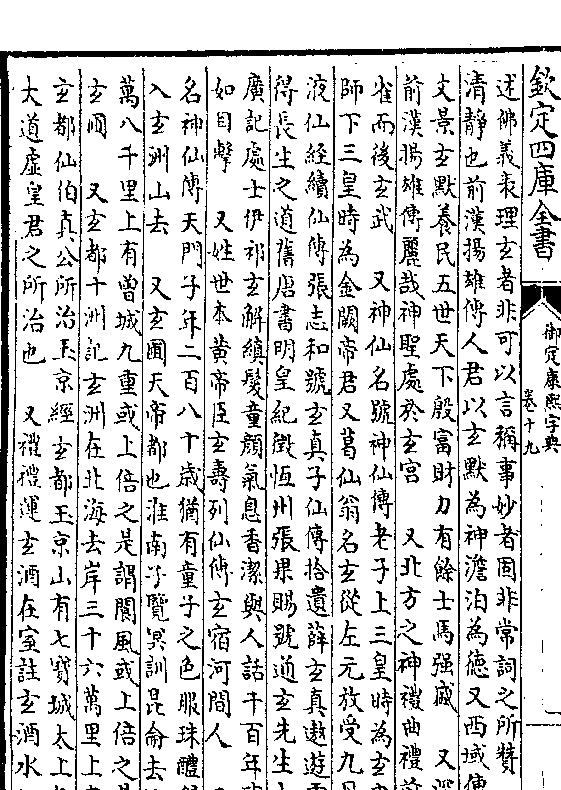 欽定四庫全書
御定康熙字典
卷十九
述佛義表理玄者非可以言稱事妙者固非常詞之所贊
清靜也前漢揚雄傳人君以玄默為神澹泊為德又西域傳
文景玄默養民五世天下殷富財力有餘士馬强盛　又
前漢揚雄傳麗哉神聖處於玄宮　又北方之神禮曲禮前
雀而後玄武　又神仙名號神仙傳老子上三皇時為玄
師下三皇時為金闕帝君又葛仙翁名玄從左元放受九丹
液仙經續仙傳張志和號玄真子仙傳拾遺薛玄真遨遊
得長生之道舊唐書明皇紀徵恆州張果賜號通玄先生
廣記處士伊祁玄解縝髮童顏氣息香潔與人話千百年
如目擊　又姓世本黃帝臣玄壽列仙傳玄宿河間人
名神仙傳天門子年二百八十歲猶有童子之色服珠醴
入玄洲山去　又玄圃天帝都也淮南子覽冥訓昆侖去
萬八千里上有曾城九重或上倍之是謂閬風或上倍之是
玄圃　又玄都十洲記玄洲在北海去岸三十六萬里上
玄都仙伯真公所治玉京經玄都玉京山有七寶城太上
大道虛皇君之所治也　又禮禮運玄酒在室註玄酒水